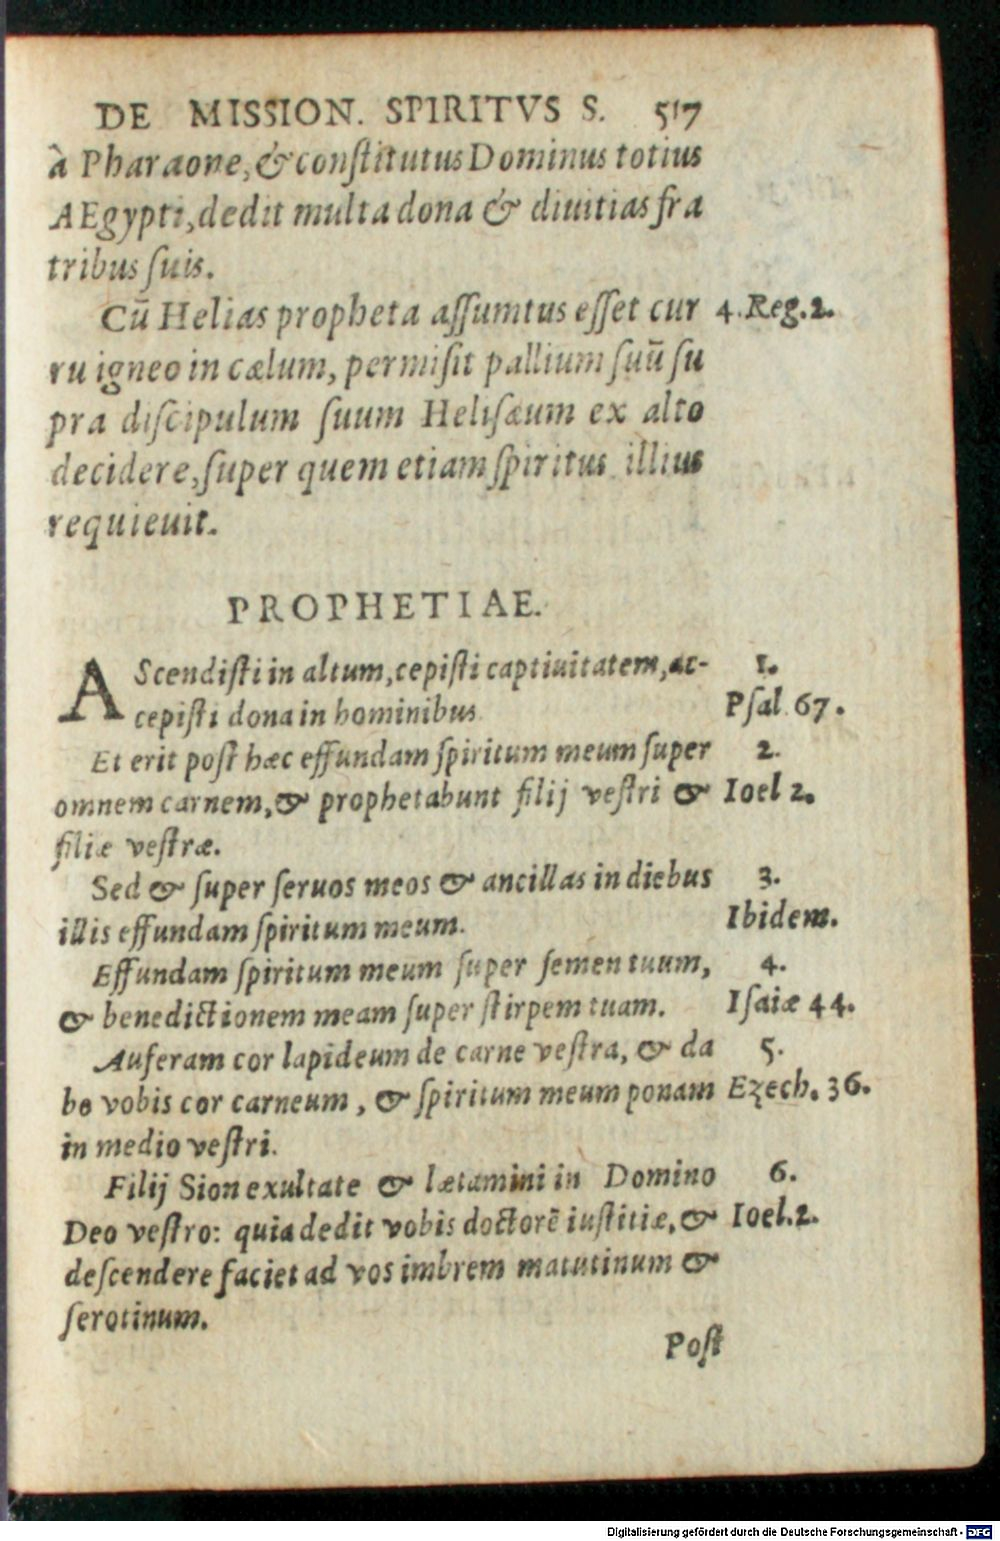 DE MISSION. SPIRITVS S. 517
à Pharaone, & conſtitutus Dominus totius
AEgypti, dedit multa dona & diuitias fra
tribus ſuis.
Cū Helias propheta aſſumtus eſſet cur 4. Reg. 2.
ru igneo in cælum, permiſit pallium ſuū ſu
pra diſcipulum ſuum Heliſæum ex alto
decidere, ſuper quem etiam ſpiritus illius
requieuit.
PROPHETIAE.
AScendiſti in altum, cepiſti captiuitatem, ac- 1.
cepiſti dona in hominibus Pſal. 67.
Et erit poſt hæc effundam ſpiritum meum ſuper 2.
omnem carnem, & prophetabunt filij veſtri & Ioel 2.
filiæ veſtræ.
Sed & ſuper ſeruos meos & ancillas in diebus 3.
illis effundam ſpiritum meum. Ibidem.
Effundam ſpiritum meum ſuper ſemen tuum, 4.
& benedictionem meam ſuper ſtirpem tuam. Iſaiæ 44.
Auferam cor lapideum de carne veſtra, & da 5.
bo vobis cor carneum, & ſpiritum meum ponam Ezech. 36.
in medio veſtri.
Filij Sion exultate & lætamini in Domino 6.
Deo veſtro: quia dedit vobis doctorē iuſtitiæ, & Ioel. 2.
deſcendere faciet ad vos imbrem matutinum &
ſerotinum.
Poſt
Digitalisierung gefördert durch die Deutsche Forschungsgemeinschaft - DFG